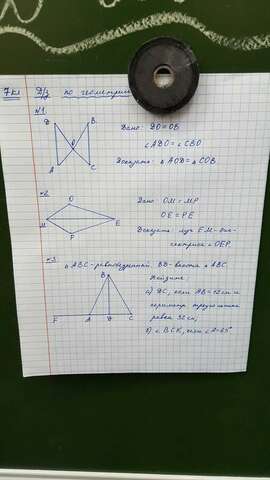 7 кл Д/з по геометрии
№1.
D B
O
A C
Дано: DO = OB
∠ABO = ∠CBO
Доказать: ∆ AOD = ∆ COB
№2
O
M E
P
Дано OM = MP
OE = PE
Доказать луч EM - бис-
сектриса ∠ OEP
№3
∆ ABC - равнобедренный. BD - высота ∆ ABC.
Найдите:
B
F A D C
а) DC, если AB = 12 см и
периметр треугольника
равен 32 см;
б) ∠ BCK, если